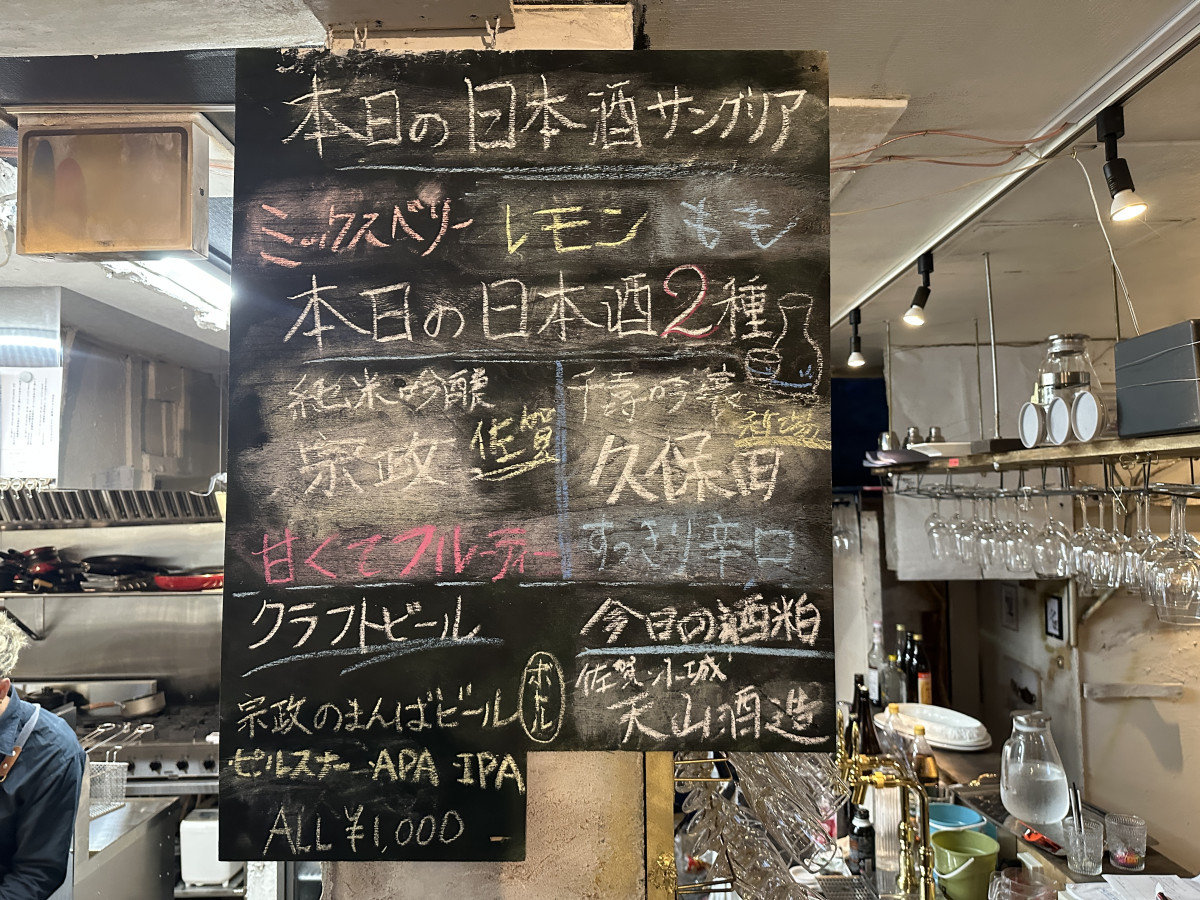 本日の日本酒サングリア
ミックスベリー レモン もも
本日の日本酒2種
純米吟醸
宗政 佐賀
甘くてフルーティー
千寿吟醸
久保田 新潟
すっきり辛口
クラフトビール
宗政のまんばビール ボトル
ピルスナー APA IPA
ALL ¥1,000
今日の酒粕
佐賀 小城
天山酒造